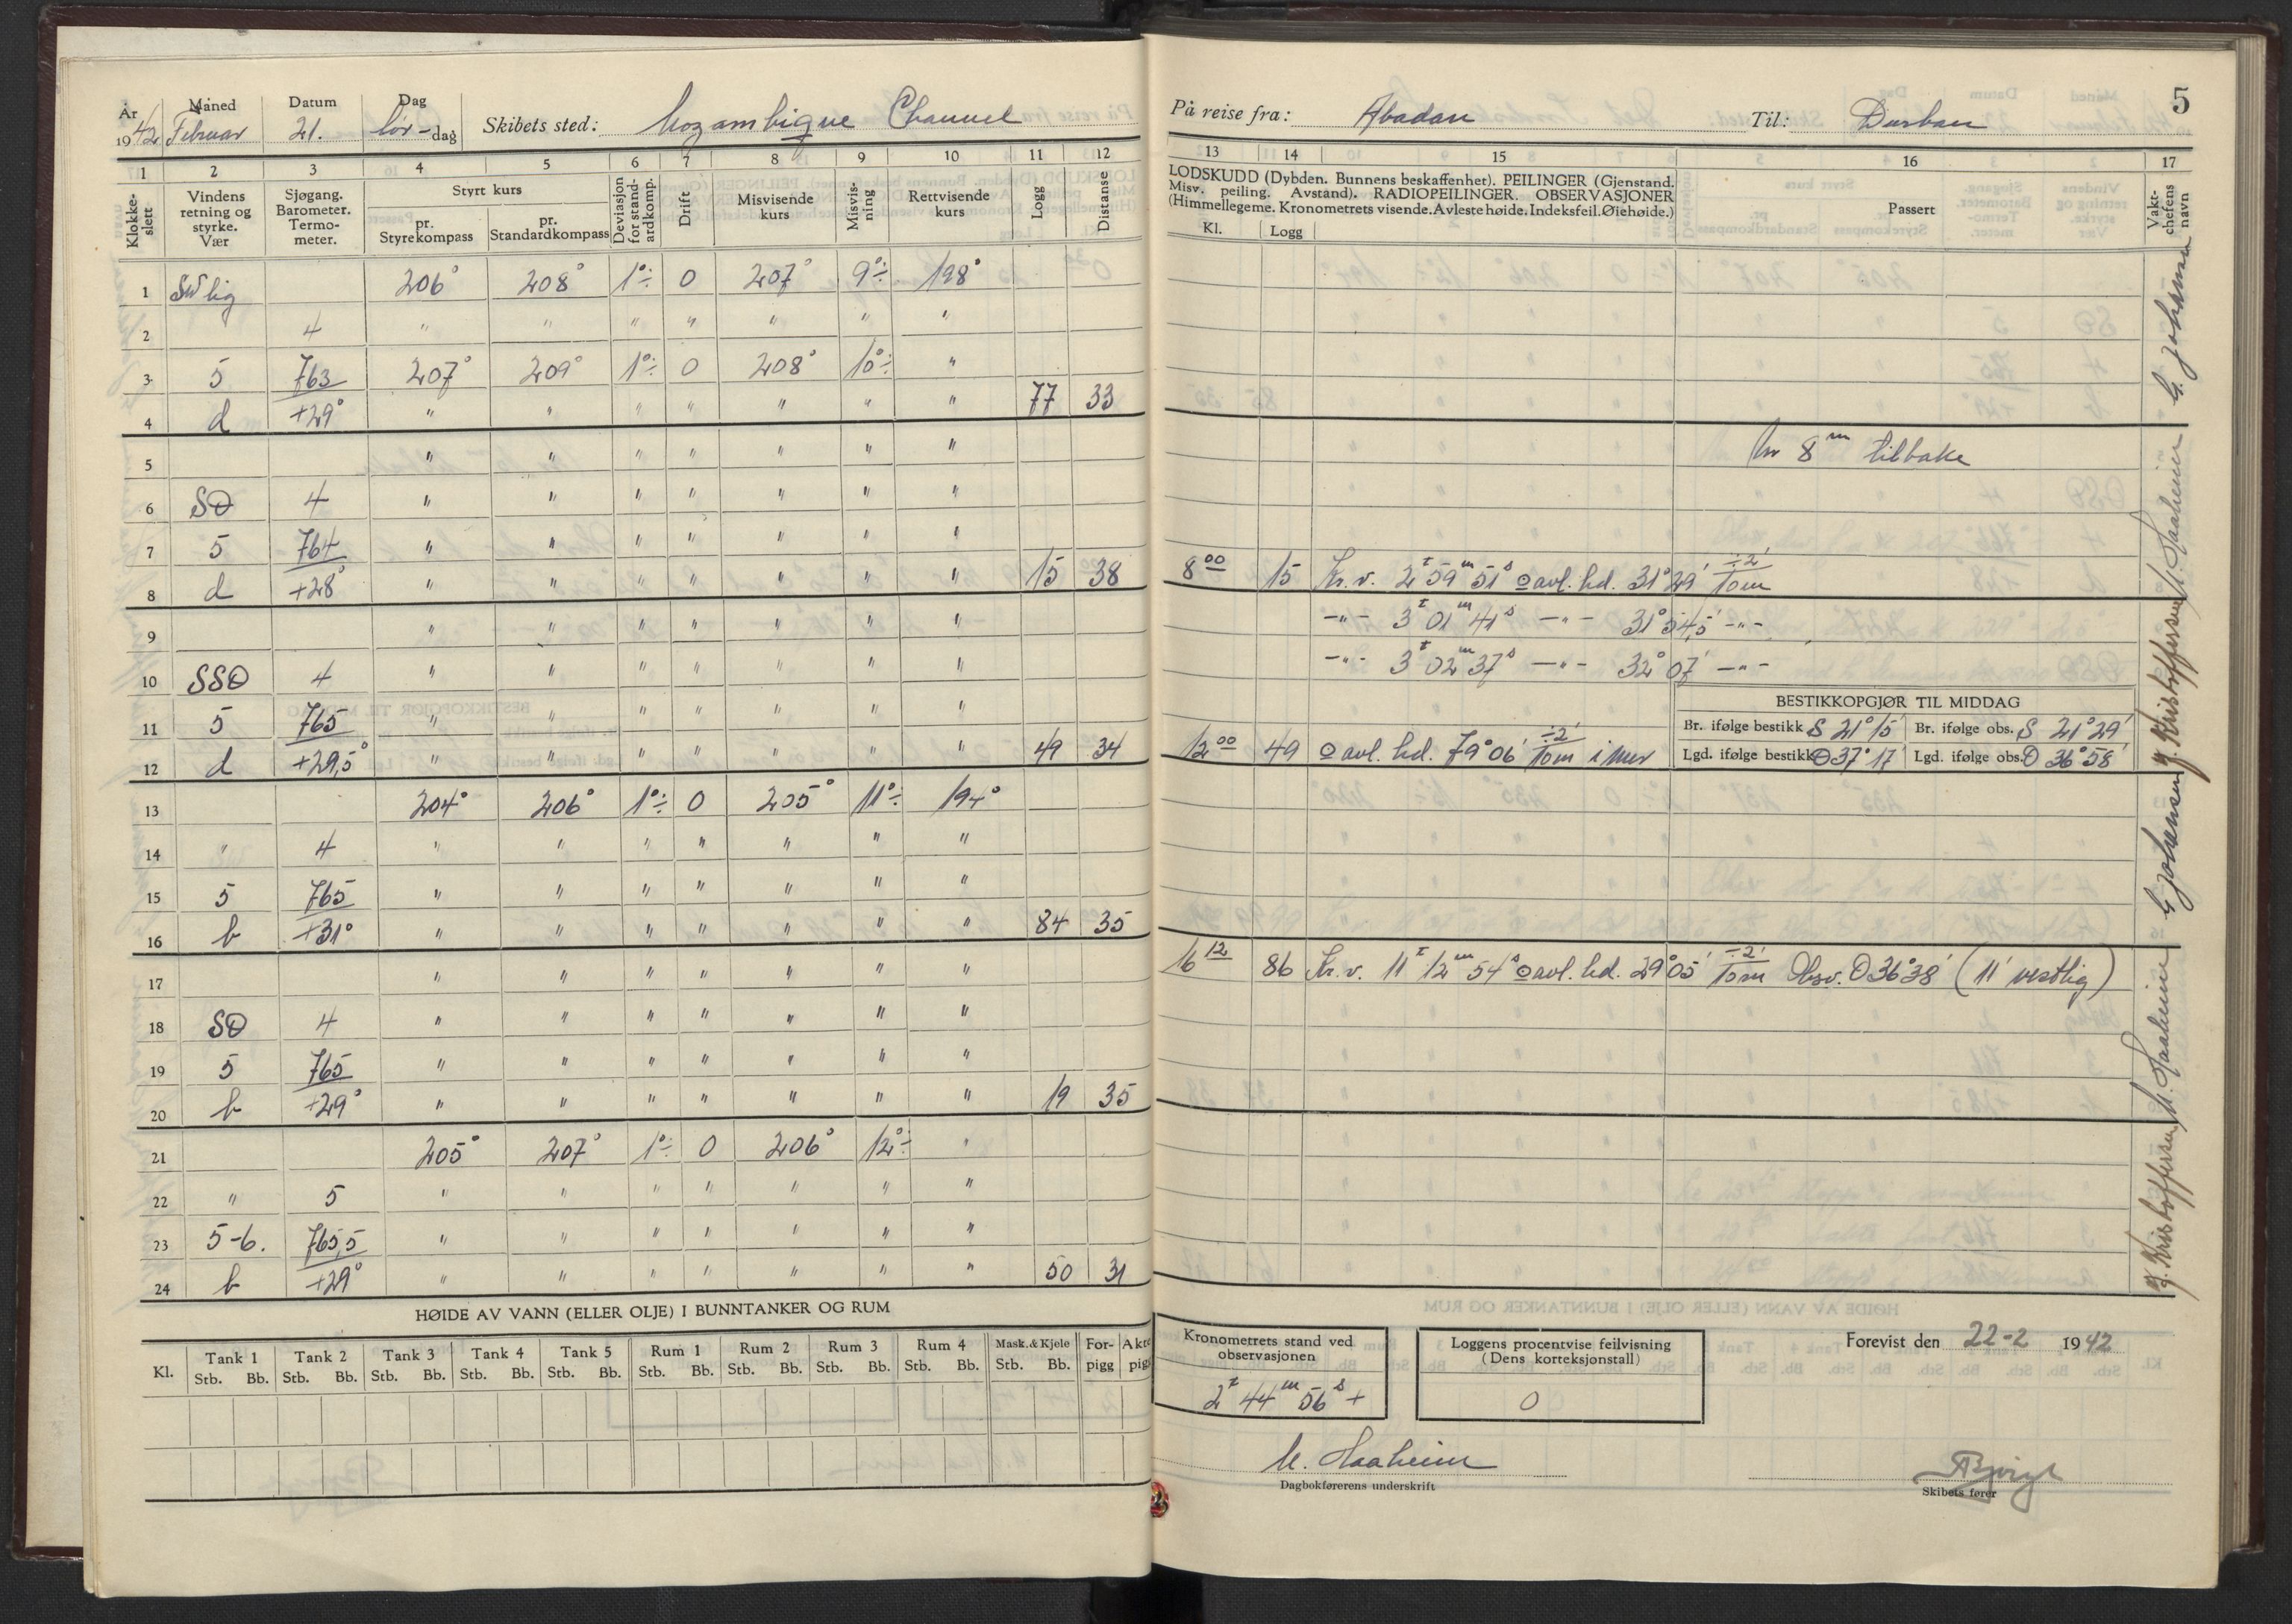 År 1942 Måned Februar Datum 21. Dag Lör-dag Skibets sted: Mozambique Channel
1 2 3 4 5 6 7 8 9 10 11 12
Klokkeslett Vindens retning og styrke. Vær Sjøgang. Barometer. Termometer. Styrt kurs pr. Styrekompass pr. Standardkompass Deviasjon for standardkomp. Drift Misvisende kurs Misvisning Rettvisende kurs Logg Distanse
1 SW lig 206° 208° 1°÷ 0 207° 9°÷ 198°
2 4 " " " " " " "
3 5 763 207° 209° 1°÷ 0 208° 10°÷ "
4 d +29° " " " " " " " 77 33
5 " " " " " " "
6 SO 4 " " " " " " "
7 5 764 " " " " " " "
8 d +28° " " " " " " " 15 38
9 " " " " " " "
10 SSO 4 " " " " " " "
11 5 765 " " " " " " "
12 d +29,5° " " " " " " " 49 34
13 204° 206° 1°÷ 0 205° 11°÷ 194°
14 " 4 " " " " " " "
15 5 765 " " " " " " "
16 b +31° " " " " " " " 84 35
17 " " " " " " "
18 SO 4 " " " " " " "
19 5 765 " " " " " " "
20 b +29° " " " " " " " 19 35
21 205° 207° 1°÷ 0 206° 12°÷ "
22 " 5 " " " " " " "
23 5-6. 765,5 " " " " " " "
24 b +29° " " " " " " " 50 31
HØIDE AV VANN (ELLER OLJE) I BUNNTANKER OG RUM
Kl. Tank 1 Tank 2 Tank 3 Tank 4 Tank 5 Rum 1 Rum 2 Rum 3 Rum 4 Mask. & Kjele For-pigg Akte pig
Stb. Bb. Stb. Bb. Stb. Bb. Stb. Bb. Stb. Bb. Stb. Bb. Stb. Bb. Stb. Bb. Stb. Bb. Stb. Bb.
5
På reise fra: Abadan Til: Durban
13 14 15 16 17
LODSKUDD (Dybden. Bunnens beskaffenhet). PEILINGER (Gjenstand.
Misv. peiling. Avstand). RADIOPEILINGER. OBSERVASJONER
(Himmellegeme. Kronometrets visende. Avleste høide. Indeksfeil. Øiehøide.)
Kl. Logg Passert Vaktchefens navn
G. Johansen
Ur 8m tilbake
M. Haaheim
8 00 15 Kr. v. 2t 59m 51s o avl. hd. 31° 29' ÷2' 10m
-"- 3t 01m 41s -"- 31° 54,5' -"-
-"- 3t 02m 37s -"- 32° 07' -"-
Kristoffersen
BESTIKKOPGJØR TIL MIDDAG
Br. ifølge bestikk S 21° 15' Br. ifølge obs. S 21° 29'
12 00 49 o avl. hd. 79° 06' ÷2' 10m i mer Lgd. ifølge bestikk O 37° 17' Lgd. ifølge obs. O 36° 58'
G. Johansen
16 12 86 Kr. v. 11t 12m 54s o avl. hd. 29° 05' ÷2' 10m Obsv. O 36° 38' (11' vestlig)
M. Haaheim
Kristoffersen
Kronometrets stand ved observasjonen
2t 44m 56s +
Loggens procentvise feilvisning (Dens korteksjonstall)
0
Forevist den 22-2 1942
M. Haaheim
Dagbokførerens underskrift
Skibets fører